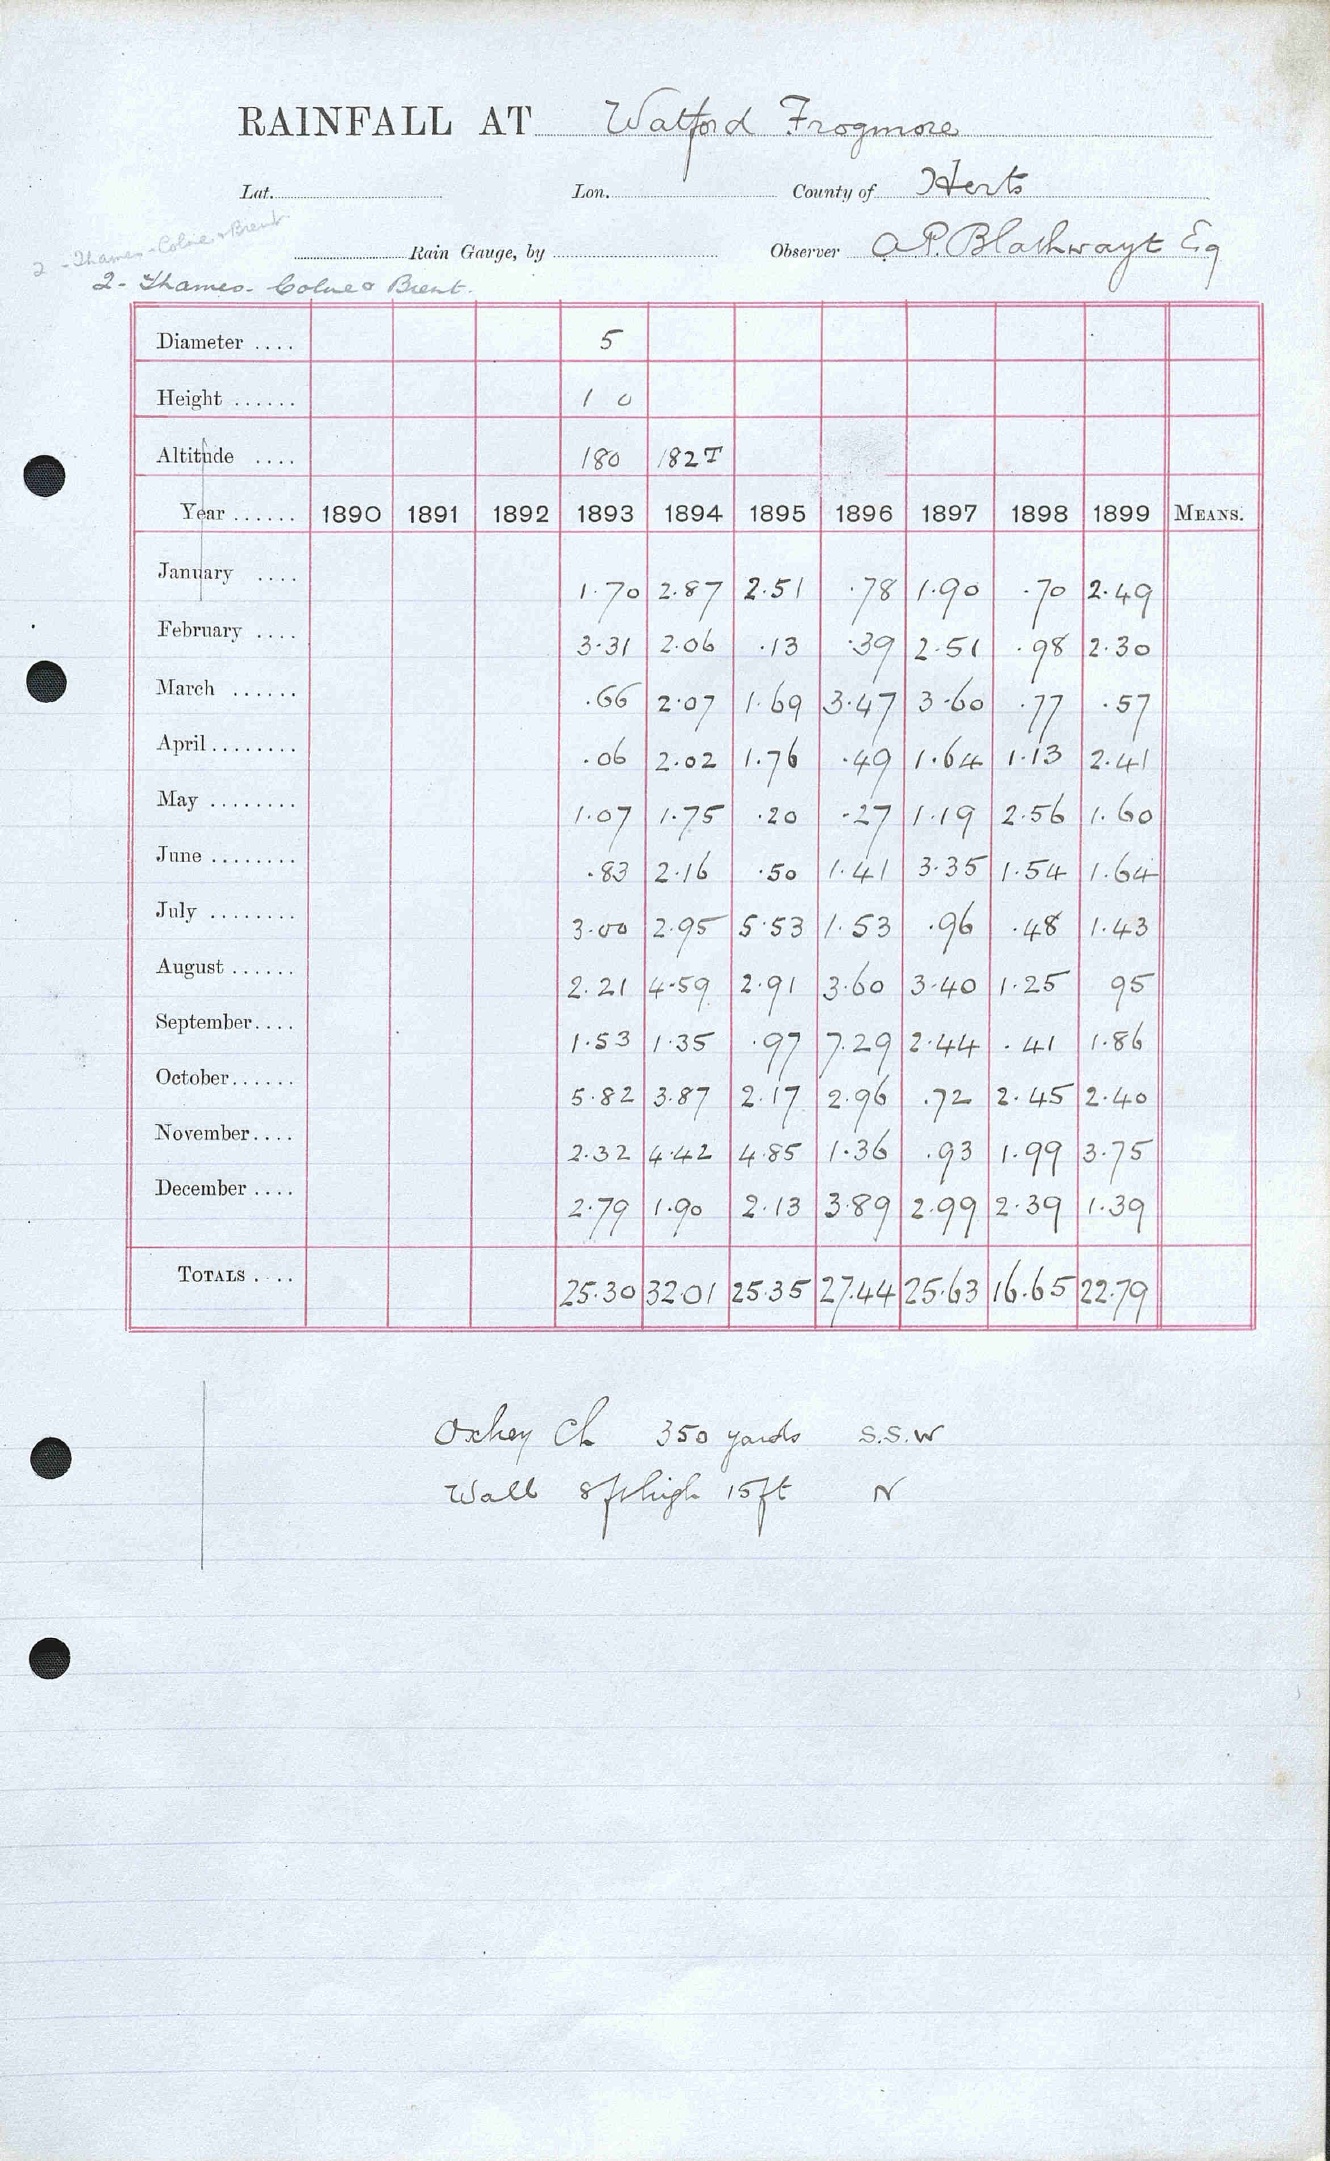 RAINFALL AT Watford Frogmore
Lat. Lon. County of Herts
2 - Thames - Colne & Brent
Rain Gauge, by Observer A.P. Blathwayt Esq
2 - Thames - Colne & Brent.
Diameter .... 5
Height ...... 1 0
Altitude .... 180 182T
Year ...... 1890 1891 1892 1893 1894 1895 1896 1897 1898 1899 MEANS.
January .... 1.70 2.87 2.51 .78 1.90 .70 2.49
February .... 3.31 2.06 .13 .39 2.51 .98 2.30
March ...... .66 2.07 1.69 3.47 3.60 .77 .57
April........ .06 2.02 1.76 .49 1.64 1.13 2.41
May ........ 1.07 1.75 .20 .27 1.19 2.56 1.60
June ........ .83 2.16 .50 1.41 3.35 1.54 1.64
July ........ 3.00 2.95 5.53 1.53 .96 .48 1.43
August ...... 2.21 4.59 2.91 3.60 3.40 1.25 95
September.... 1.53 1.35 .97 7.29 2.44 .41 1.86
October...... 5.82 3.87 2.17 2.96 .72 2.45 2.40
November.... 2.32 4.42 4.85 1.36 .93 1.99 3.75
December .... 2.79 1.90 2.13 3.89 2.99 2.39 1.39
TOTALS .... 25.30 32.01 25.35 27.44 25.63 16.65 22.79
Oxhey Ch 350 yards S.S.W
Wall 8ft high 15ft N